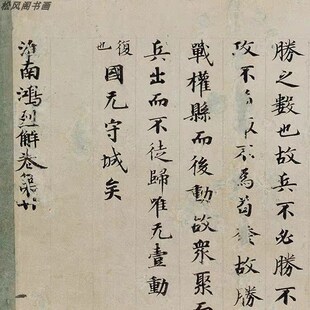 松风阁书画
勝之數也故兵不必勝不
攻不 爲苟發故勝
戰權縣而後動故衆聚而
兵出而不徒歸唯无壹動
國无守城矣
復也
淮南鴻烈解卷第廿